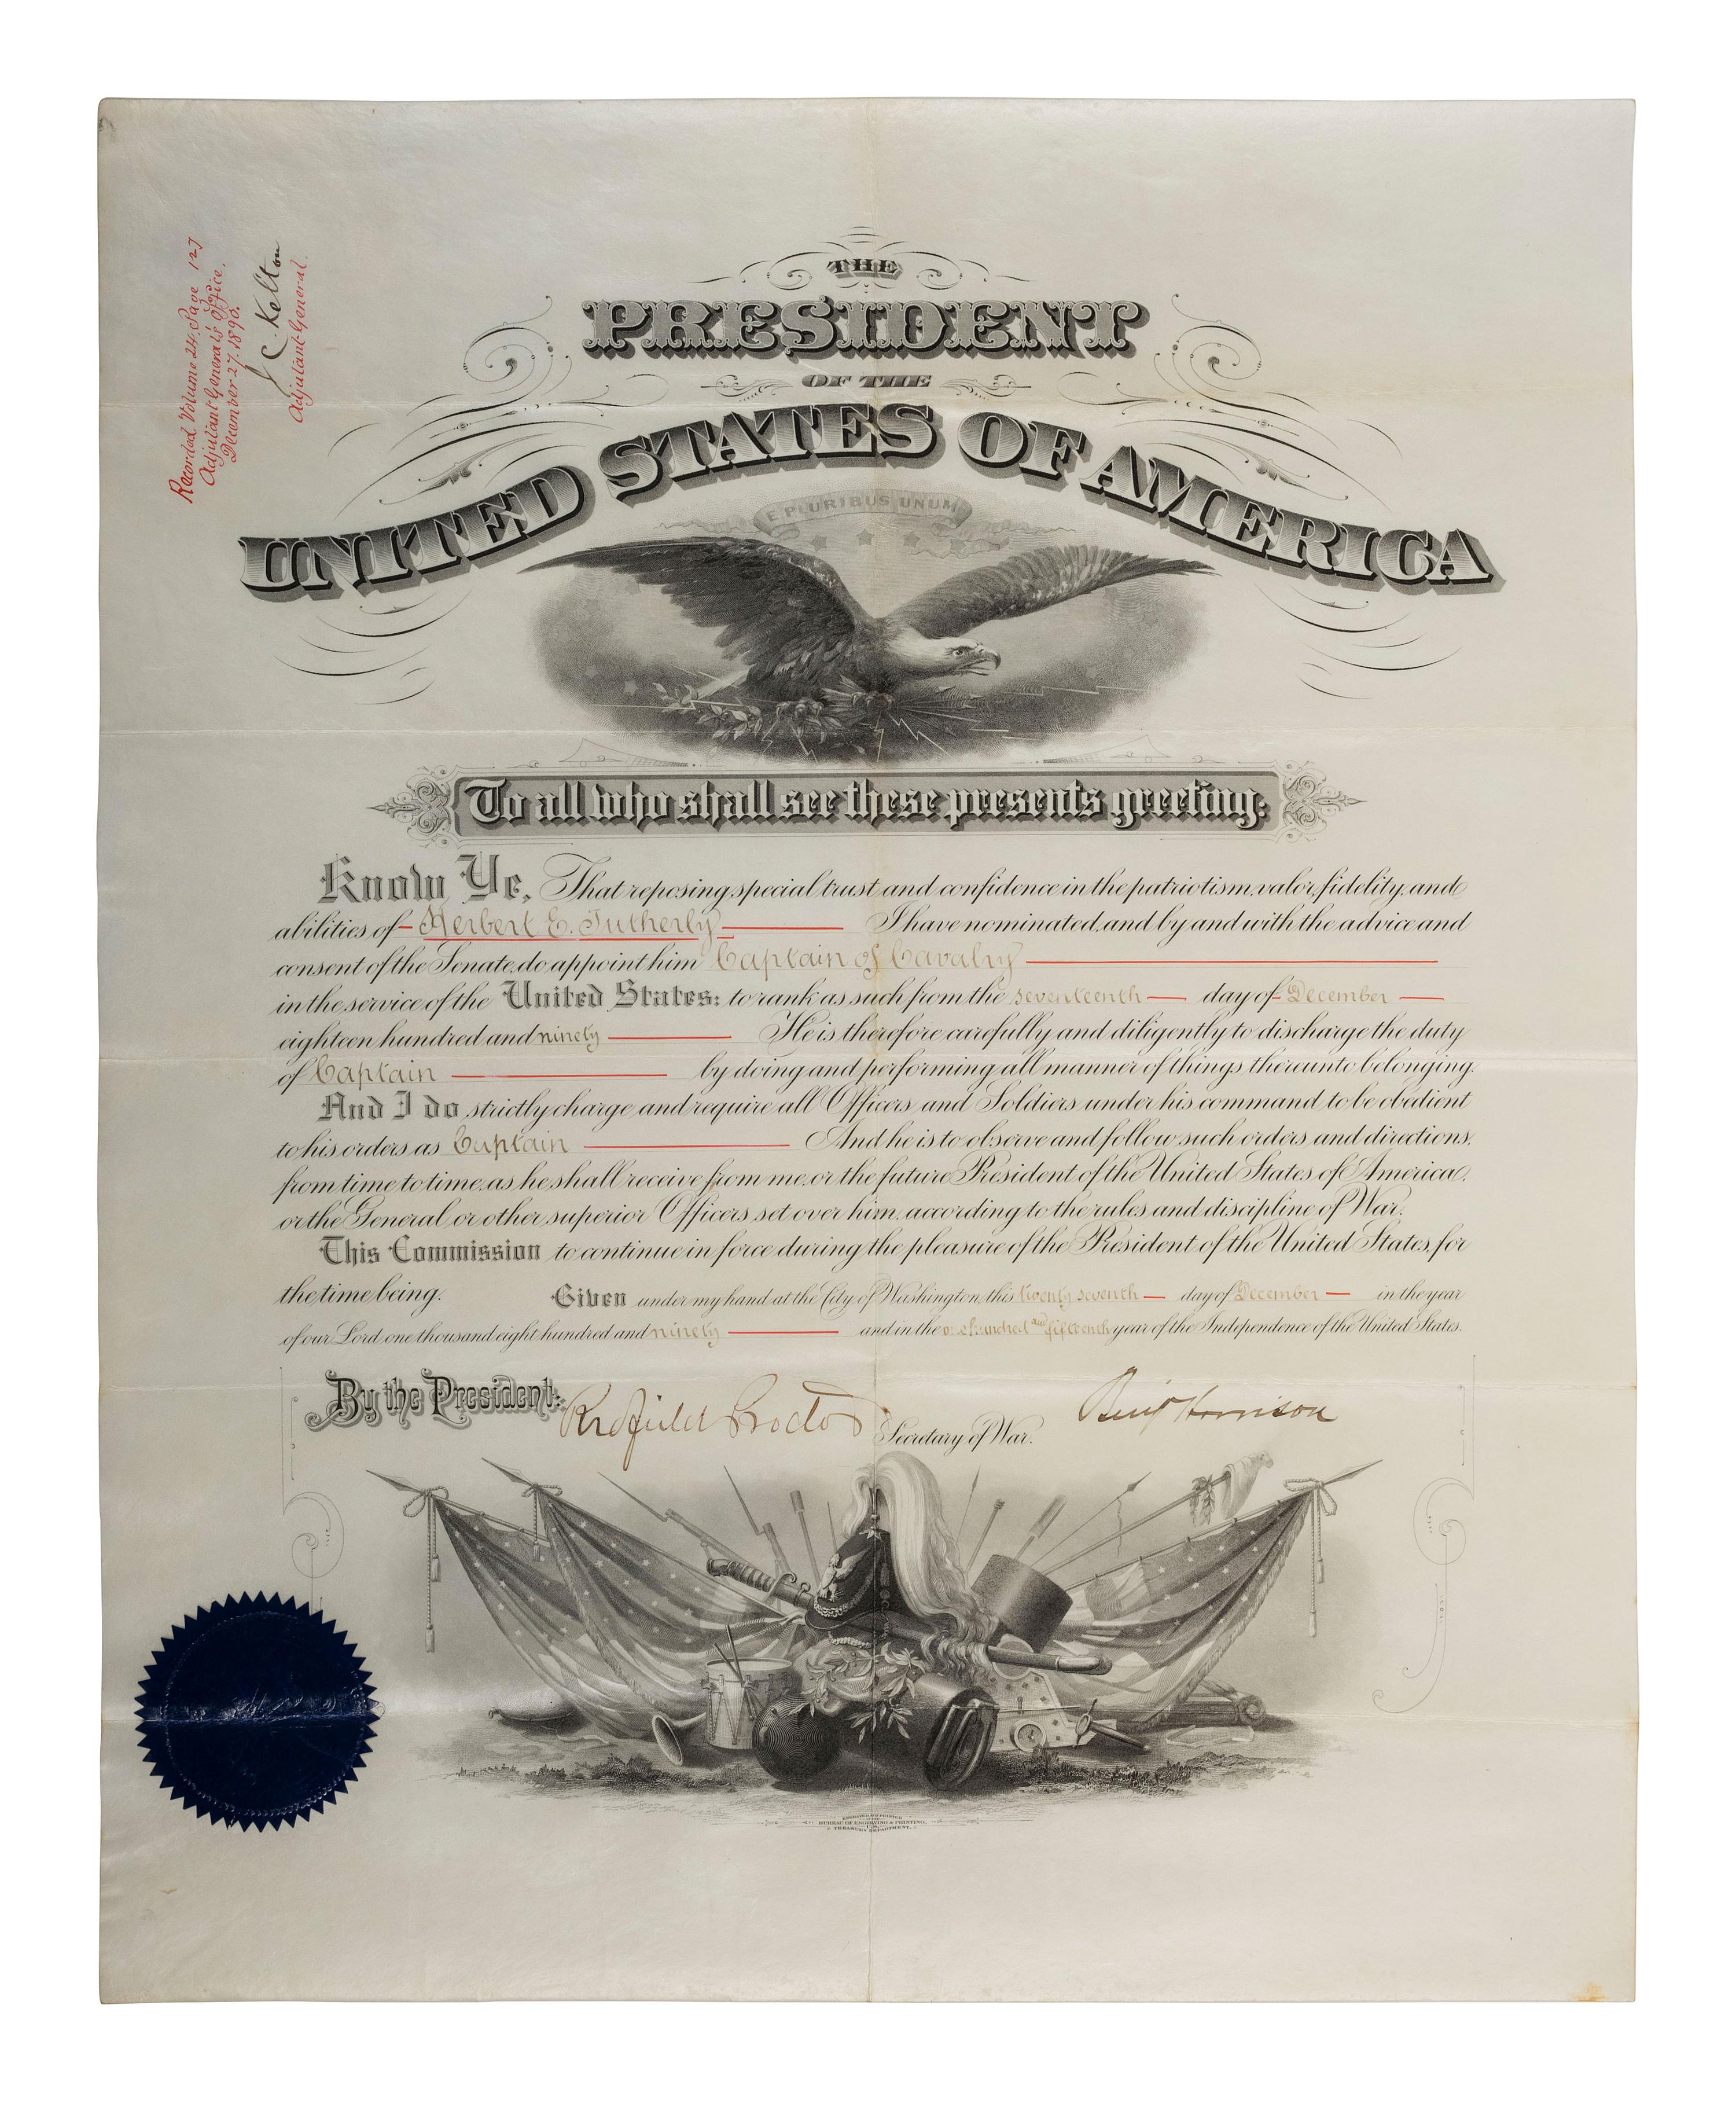 Recorded Volume 24, Page 127
Adjutant General's Office,
December 27. 1890.
J. C. Kelton
Adjutant General.
THE
PRESIDENT
OF THE
UNITED STATES OF AMERICA
E PLURIBUS UNUM
To all who shall see these presents greeting:
Know Ye, That reposing special trust and confidence in the patriotism, valor, fidelity, and
abilities of Herbert E. Tutherly I have nominated, and by and with the advice and
consent of the Senate, do appoint him Captain of Cavalry
in the service of the United States: to rank as such from the seventeenth day of December
eighteen hundred and ninety He is therefore carefully and diligently to discharge the duty
of Captain by doing and performing all manner of things thereunto belonging.
And I do strictly charge and require all Officers and Soldiers under his command to be obedient
to his orders as Captain And he is to observe and follow such orders and directions,
from time to time, as he shall receive from me, or the future President of the United States of America,
or the General or other superior Officers set over him, according to the rules and discipline of War.
This Commission to continue in force during the pleasure of the President of the United States, for
the time being. Given under my hand at the City of Washington, this twenty seventh day of December in the year
of our Lord one thousand eight hundred and ninety and in the one hundred and fifteenth year of the Independence of the United States.
By the President: Redfield Proctor Secretary of War. Benj Harrison
ENGRAVED AND PRINTED
BUREAU OF ENGRAVING & PRINTING,
TREASURY DEPARTMENT.